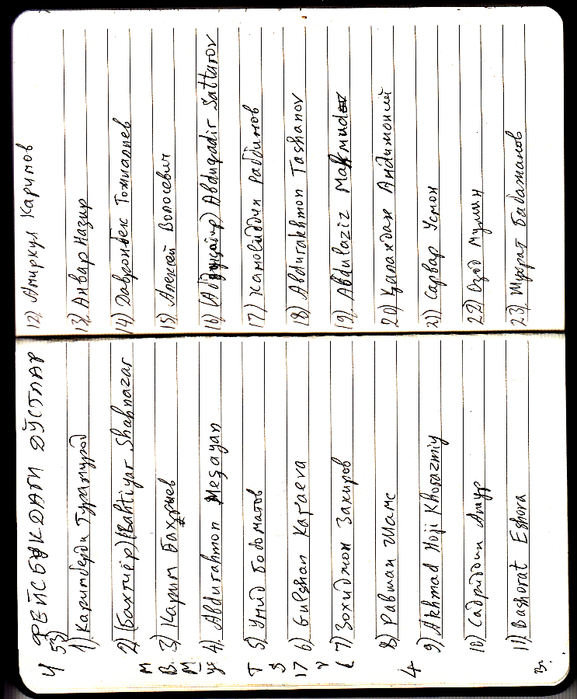 ФЕЙСБУКДАГИ ДЎСТЛАР
53
1) Каримберди Турамурод
2) (Бахтиёр) Bahtiyar Shahnazar
3) Карим Бахриев
4) Abdurahmon
5) Умид Бобоматов
6) Gulshan Karaeva
7) Зохиджон Закиров
8) Равшан Шамс
9) Akhmad Hoji Khorazmiy
10) Садриддин Ашур
11) Bashorat Eshova
12) Амиркул Каримов
13) Анвар Назир
14) Давронбек Тожиалиев
15) Алексей Волосевич
16) (Абдуқодир) Abduqadir Sattarov
17) Камолиддин Раббимов
18) Abdurakhmon Tashanov
19) Abdulaziz Mahmudov
20) Қаландар
21) Сарвар Усмон
22) Озод Мумин
23) Шухрат Бабажанов